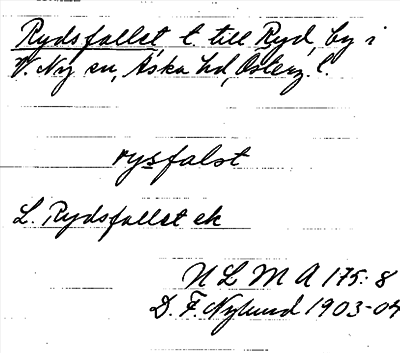 Rydsfallet, t. till Ryd, by i
V. Ny sn, Aska hd, Österg. l.
rysfalst
L. Rydsfallet ek
N L M A 175:8
D. F. Nylund 1903-04